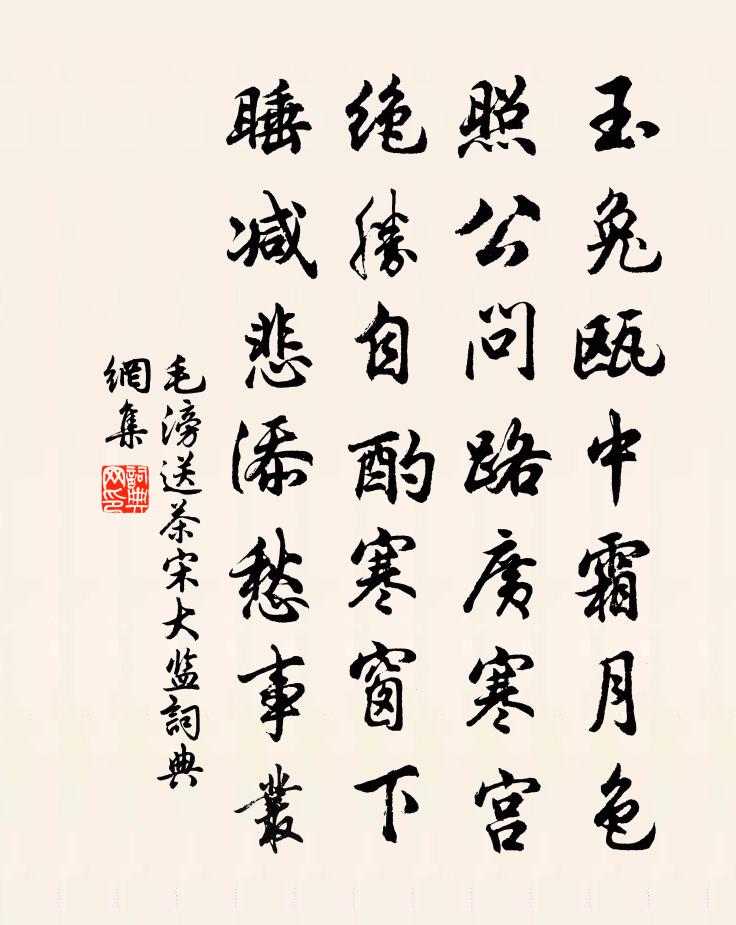 玉兔瓯中霜月色
照公问路廣寒宫
绝勝自酌寒窗下
睡减悲添愁事叢
毛滂送茶宋大监詞典
網集
詞典網印